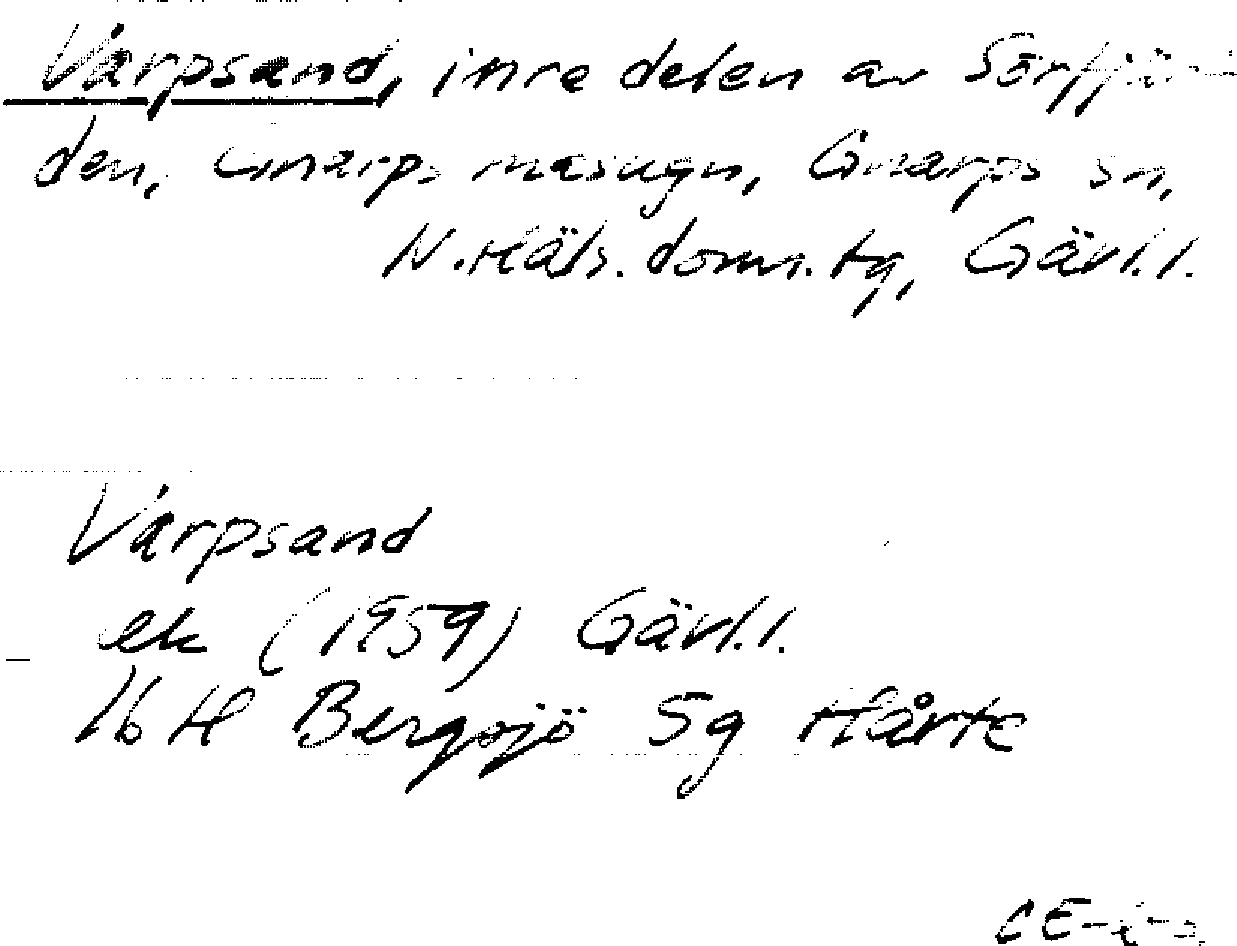 Varpsand, inre delen av Sörfjär-
den, Gnarps masugn, Gnarps sn,
N.Häls. doms.tg, Gävl.l.
Varpsand
ek (1959) Gävl.l.
16 H Bergsjö 5g Hårte